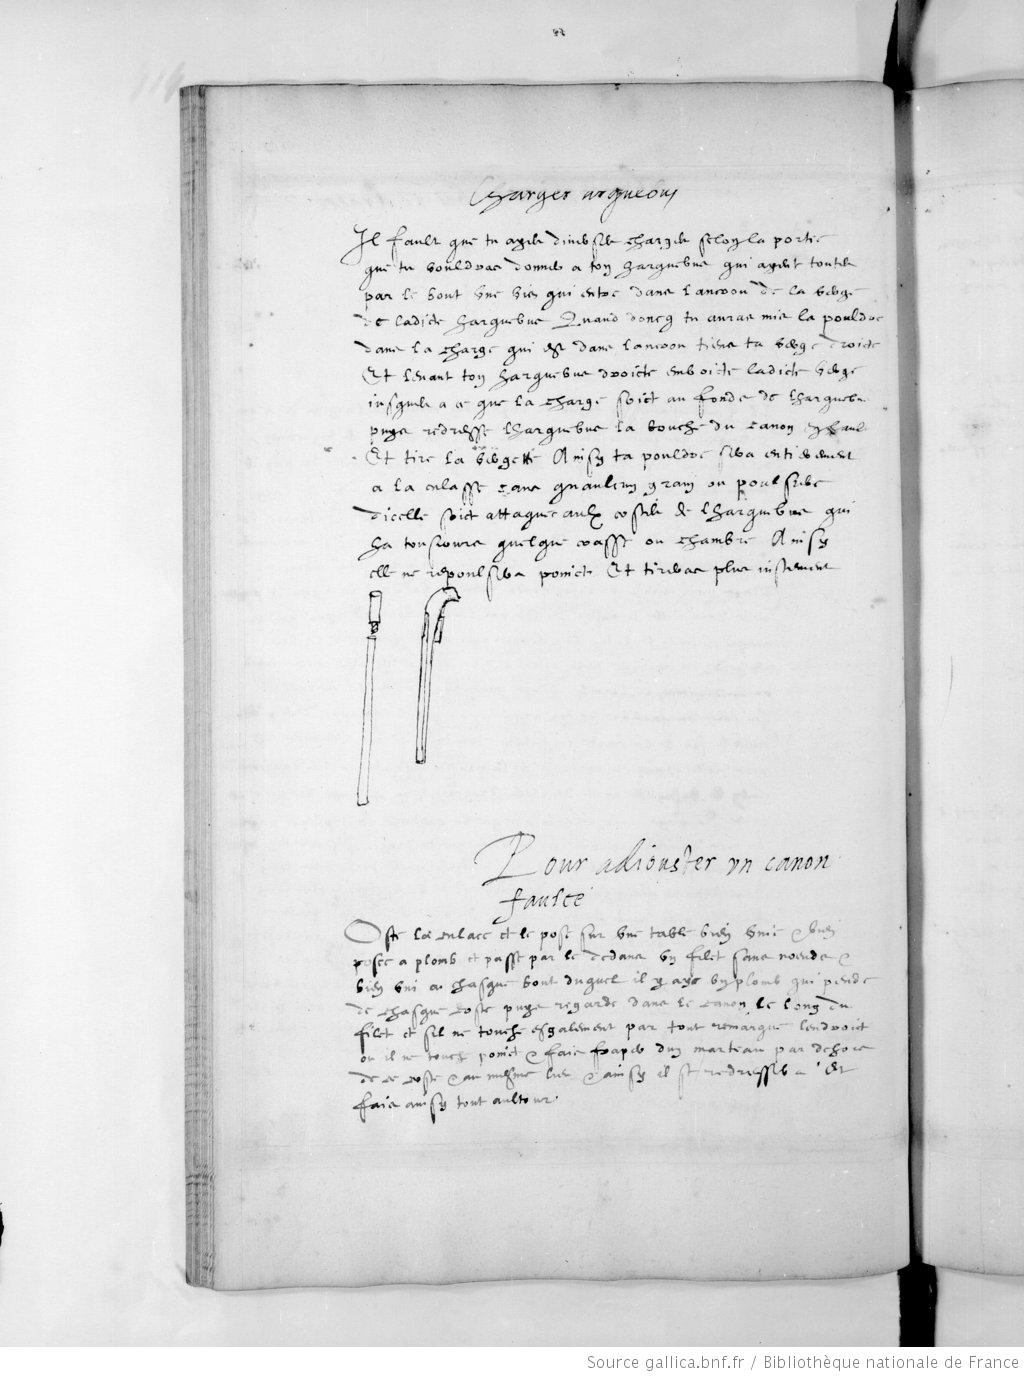 Charger arquebus
Il fault que tu ayes diverses charges selon la portee
que tu vouldras donner a ton harquebus qui ayent toutes
par le bout une viz qui entre dans lancrou de la verge
de ladicte harquebus Quand doncq tu auras mis la pouldre
dans la charge qui est dans lancrou tiens ta verge droicte
Et tenant ton harquebus droicte emboicte ladicte verge
jusques a ce que la charge soict au fonds de lharquebus
puys redresse lharquebus la bouche du canon en hault
Et tire la vergette Ainsy ta pouldre sera entierement
a la culasse sans qu aulcun grain ou poulsiere
dicelle soict attaque aulx costes de lharquebus qui
ha tousjours quelque crasse ou chambre Ainsy
elle ne repoulsera poinct Et tireras plus justement
Pour adiouster un canon
faulce
Oste la culace et le pose sur une table bien unie & bien
posee a plomb et passe par le dedans un filet sans noeuds &
bien uni a chasque bout duquel il y ays un plomb qui pende
de chasque coste puys regarde dans le canon le long du
filet et sil ne touche esgalement par tout remarque lendroict
ou il ne touche poinct & fais fraper dun marteau par dehors
de ce coste & au mesme lieu & ainsy il se redressera Et
fais ainsy tout aultour
Source gallica.bnf.fr / Bibliothèque nationale de France